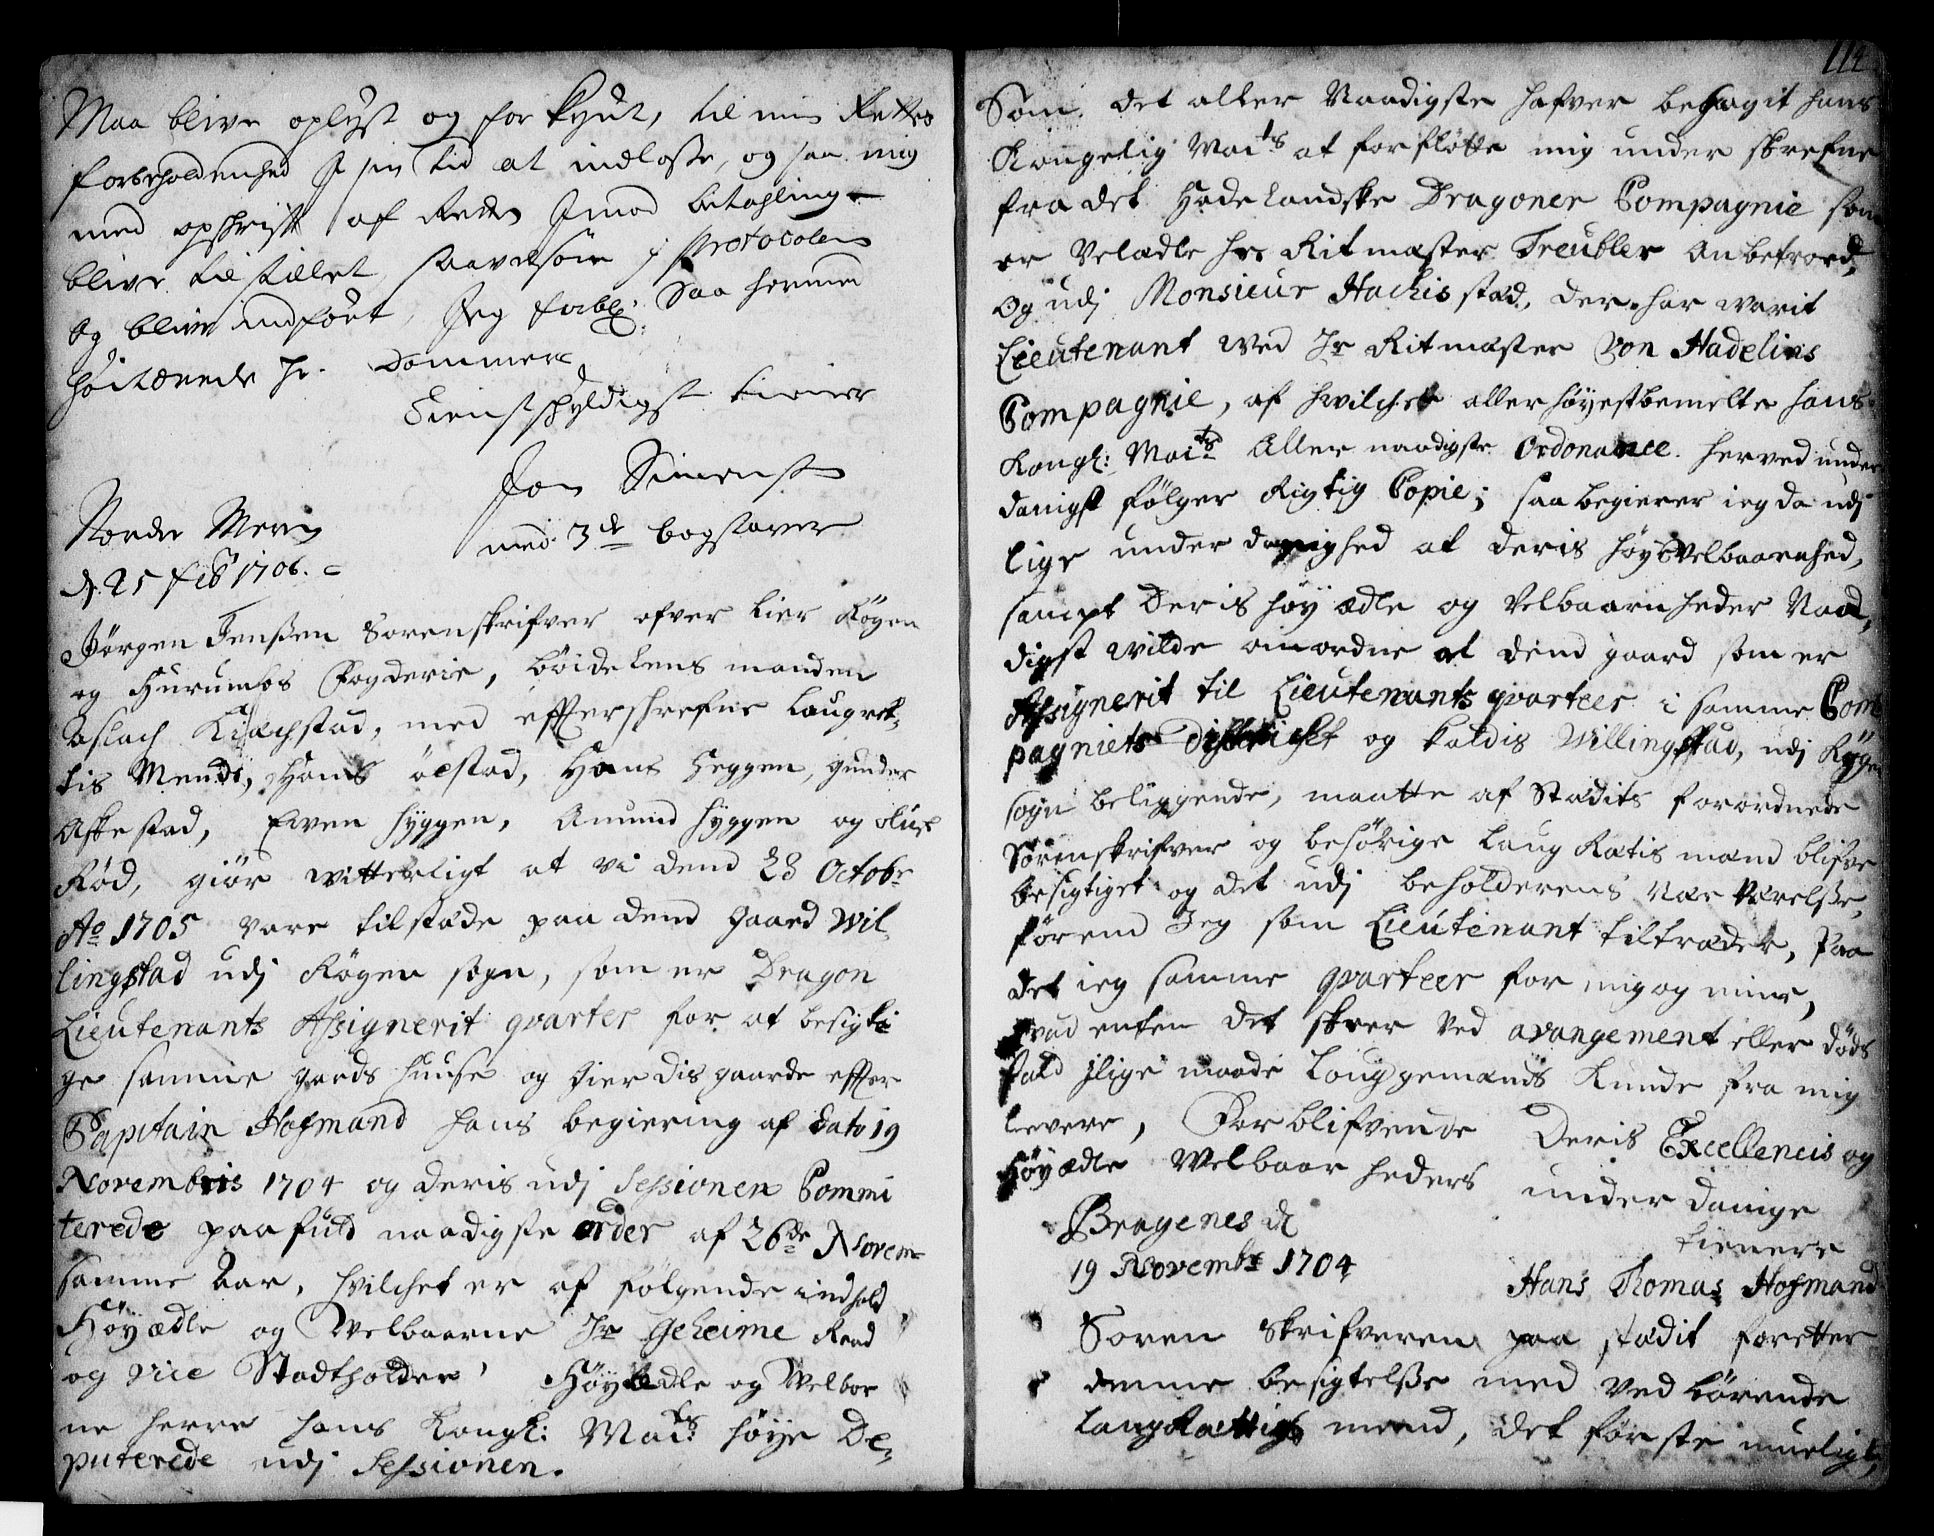 Maa blive oplyst og forkyndt, til min Rettes
forbeholdenhed I sin tid at indløsse, og saa mig
med opskrifft af Retten Imod betahling
blive tilstillet, saavelsom j protocolen
og blive indført, Jeg forbl: Saa hermed
høitærede Hr. Dommere
Tienstskyldigst tiener
Jon Simensen
med 3de bogstaver
Nordre Meren
d. 25 feb 1706.
Jørgen Jenßen Sorenskrifver ofver Lier Røgen
og Hurumbs Fogderie, bøide Lens manden
Aslach Kiæchstad, med effterschrefne Laugret,
tis Mend, Hans ølstad, Hans Heggen, gunder
Askestad, Even Hyggen, Amund Hyggen og oluf
Rød, giør witterligt at vi dend 28 Octobr
Ao 1705 vare tilstæde paa dend gaard Wil,
lingstad udj Røgen sogn, som er Dragon
Lieutenants Assignerit qvarter for at besigti
ge samme gaards Huuse og Gierdisgaarde effter
Capitain Hofmand hans begiering af dato 19
Novembris 1704 og deris udj Sessionen Commi
terede paafuld naadigste order af 26de Novem
samme Aar, hvilchet er af følgende indhold,
Høyædle og Welbaarne Hr Geheime Raad
og vice Stadtholder, Høyædle og Welbor
ne Herre hans Kongl: Maits høye De,
puterede udj Sessionen.
114
Som det aller Naadigste hafver behagit hans
Kongelig Maits at forfløtte mig under skrefne
fra det Hadelandske Dragoner Compagnie som
er Velædle hr Ritmæster Treubler Anbetroed,
Og udj Monsieur Hachisstad, der har varit
Lieutenant ved Hr Ritmæster von Hadelins
Compagnie, af hvilchet allerhøyestbemelte hans
Kongl: Maits Aller naadigste Ordonance herved under
danigst følger Rigtig Copie; saa begierer ieg da udj
lige underdanighed at deris høyvelbaarenhed,
sampt Deris høyædle og Velbaarnheder Naa,
digst wilde anordne at dend gaard som er
Assignerit til Lieutenants qvarteer i samme Com
pagniets District og kaldis Willingstad, udj Røgen
sogn beliggende, maatte af Stædits forordnede
Sørenskrifver og behørige Laug Rætis mænd blifve
besigtiget og det udj beholderens nærværelße,
førend Jeg som Lieutenant tiltræder, Paa
det ieg samme qvarteer for mig og mine,
hvad enten det skeer ved avangement eller døds
fald jlige maade Lougge mænds kunde fra mig
levere, Forblifvende Deris Excellencis og
Høyædle Velbaarheders underdanige
tienere
Bragenes d
19 Novembr 1704
Hans Thomas Hofmand
Soren Skrifveren paa stædit foretter
denne besigtelße med vedbørende
Laug Rættis mend, det første mueligt,